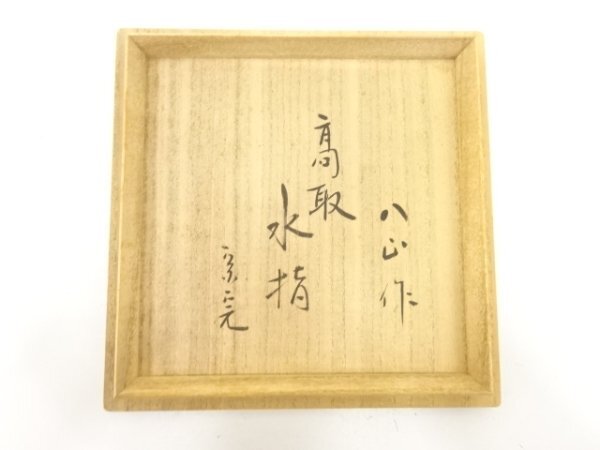 八山作
高取
水指
宗完